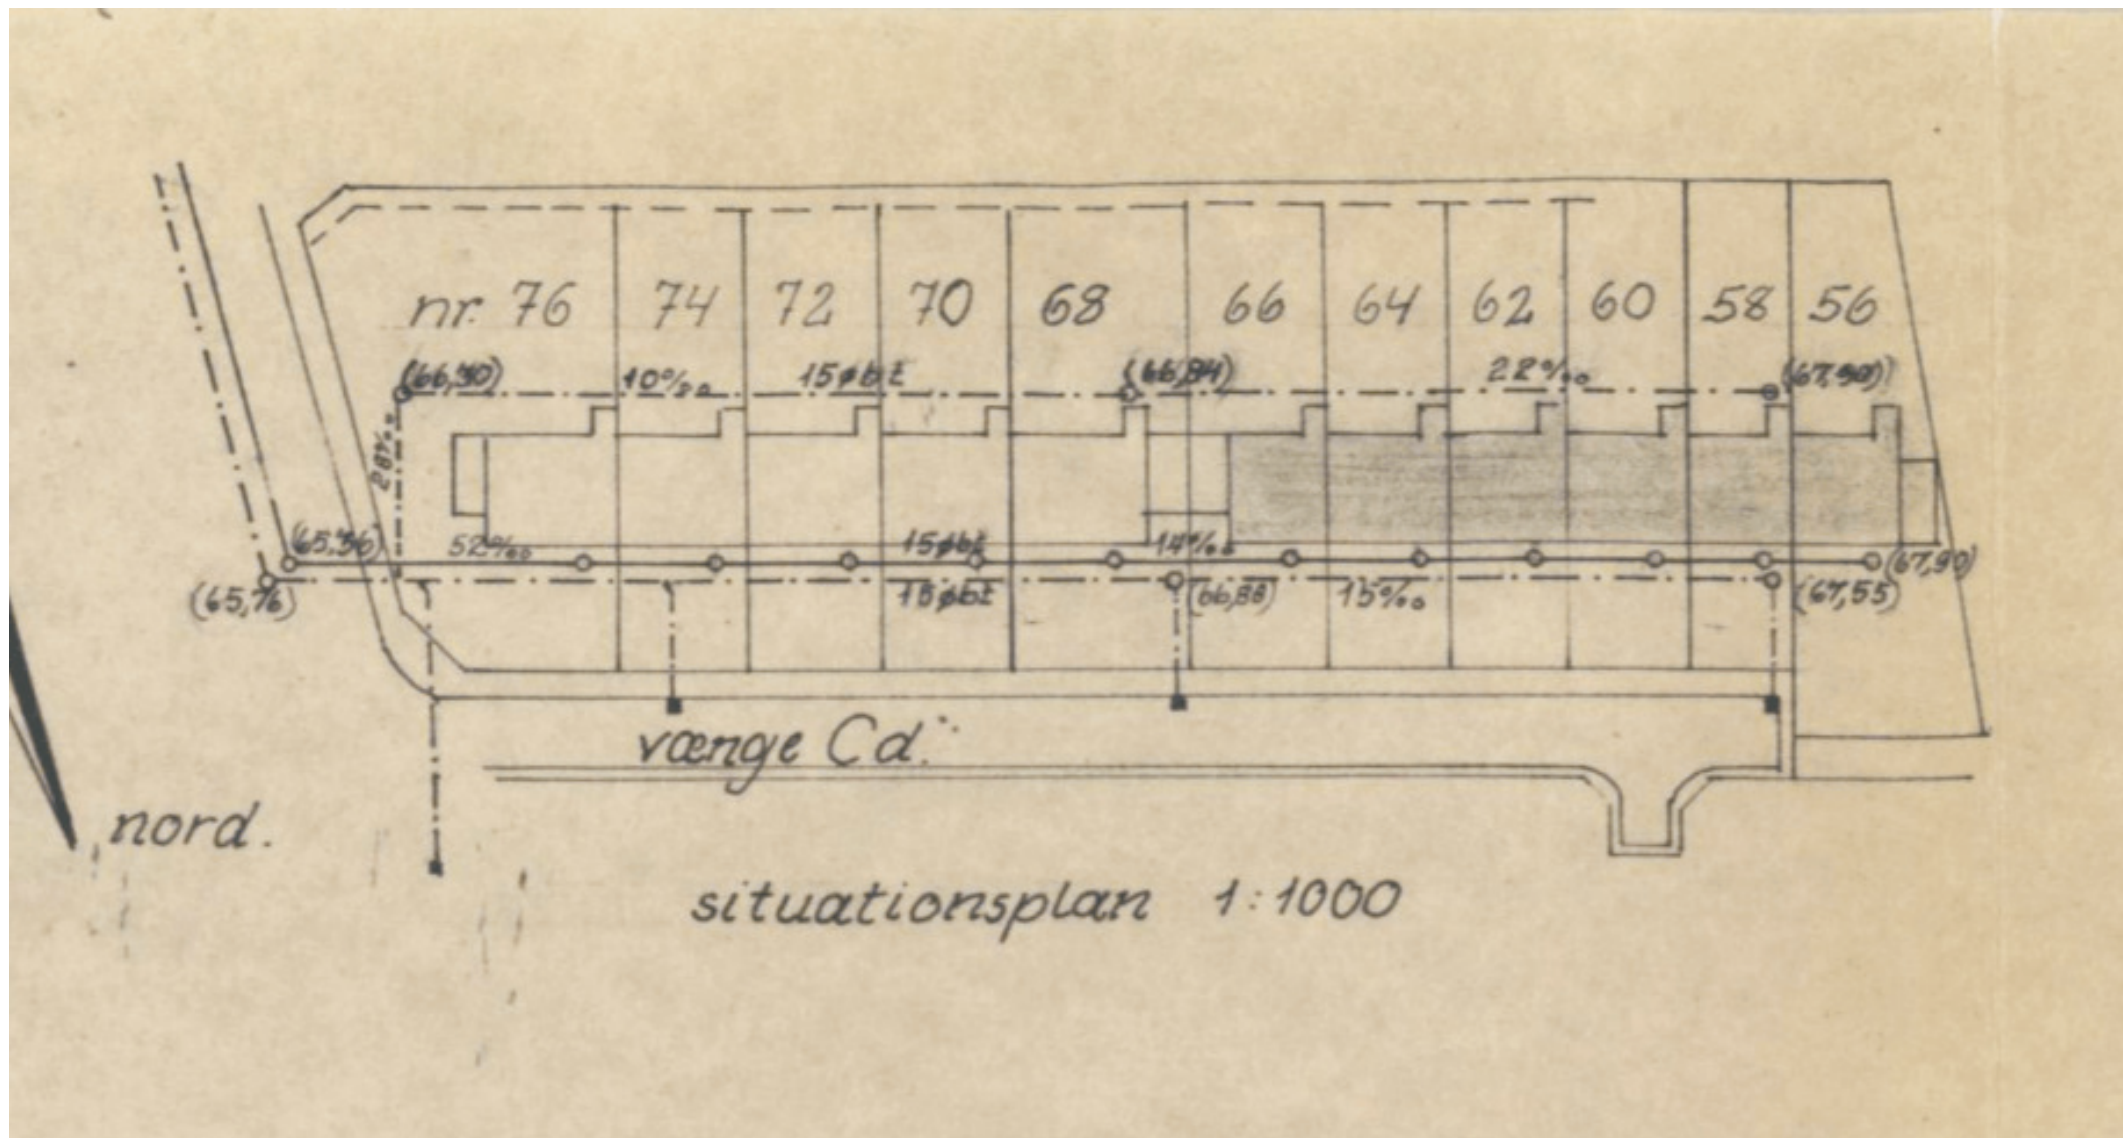 nr. 76 74 72 70 68 66 64 62 60 58 56
(66,30) 10‰ 15øbt (66,84) 22‰ (67,90)
28‰
(65,36) 52‰ 15øbt 14‰ (67,90)
(65,76) 15øbt (66,88) 15‰ (67,55)
vænge Cd.
nord.
situationsplan 1:1000